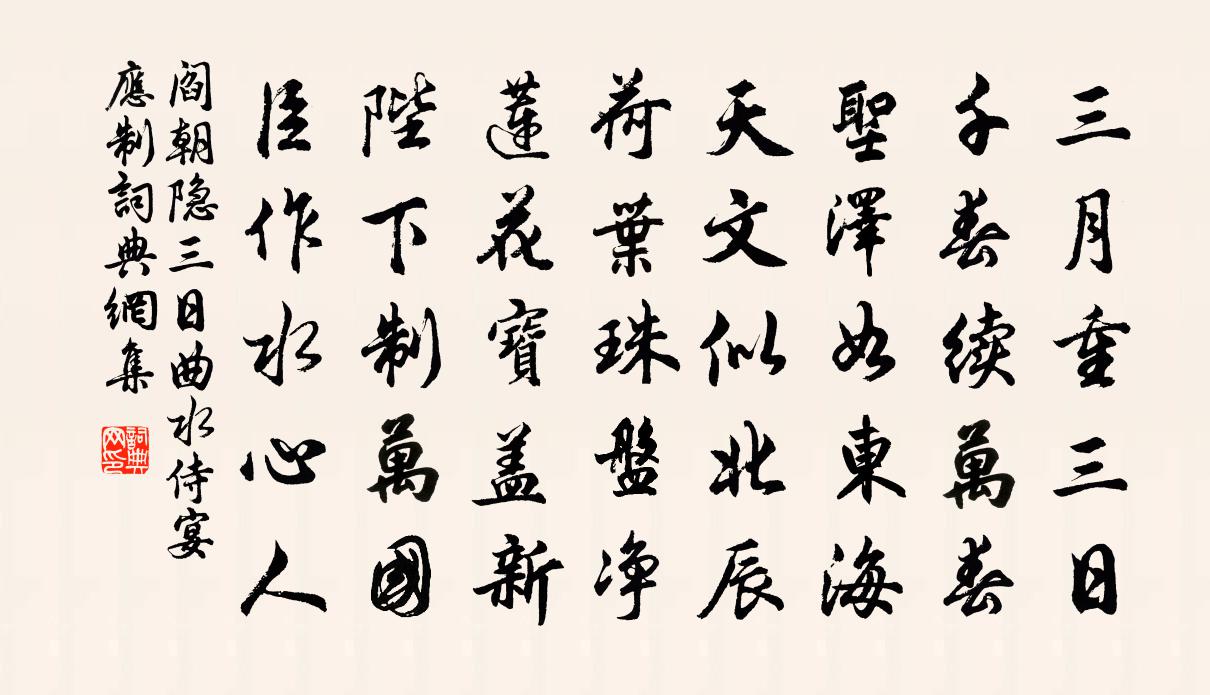 三月重三日
千春续萬春
聖澤如東海
天文似北辰
荷葉珠盤净
蓮花寶盖新
陛下制萬國
臣作水心人
閻朝隐三日曲水侍宴
應制詞典網集
詞典
网印